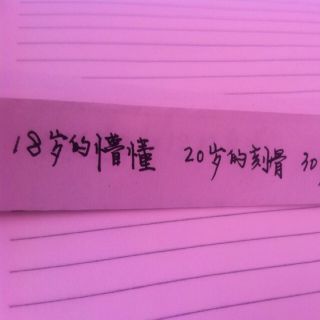 18岁的懵懂 20岁的刻骨 30